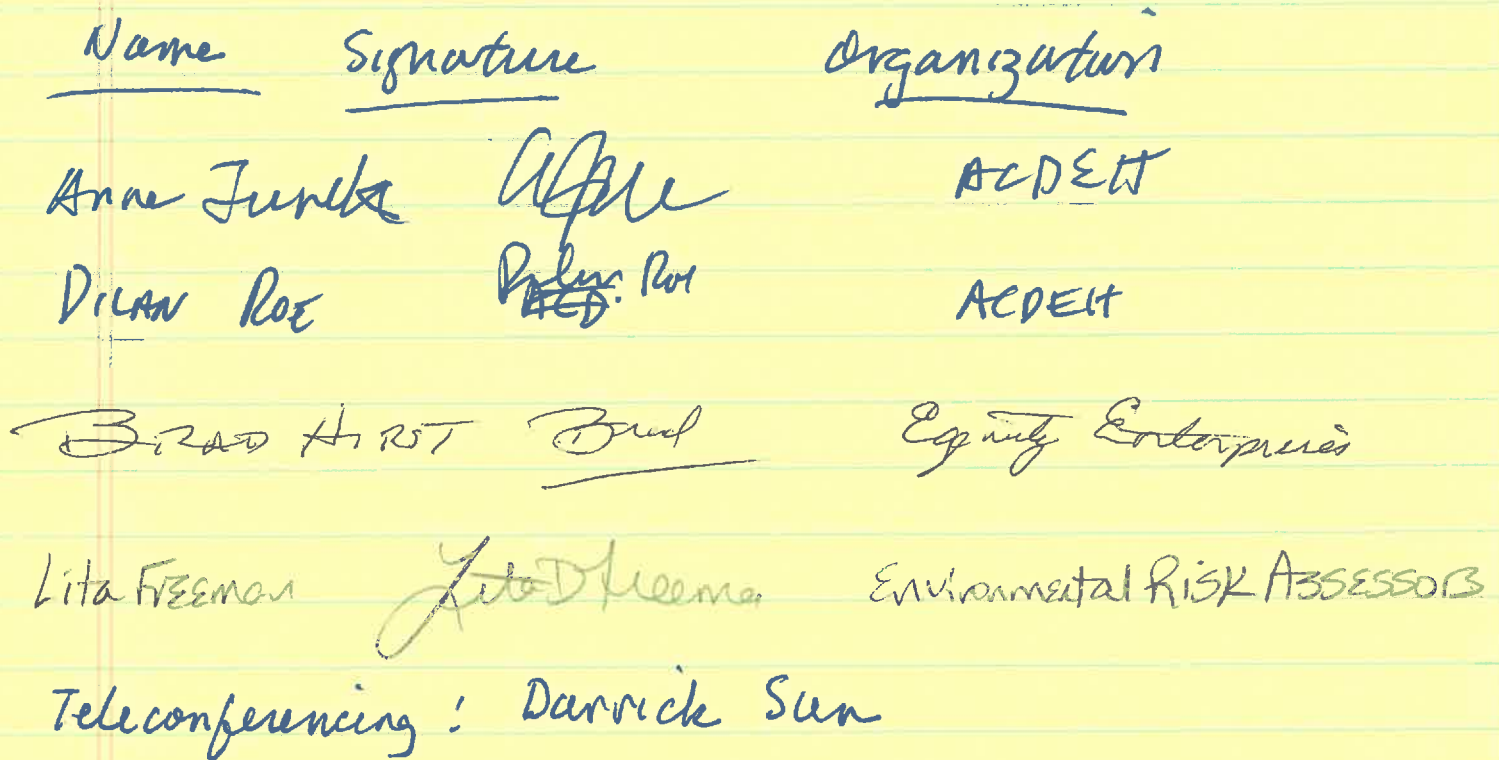 Name Signature Organization
Anne Jurek ACDEH
DILAN ROE Dilan Roe ACDEH
BRAD HIRST Brad Equity Enterprises
Lita Freeman Lita D Freeman Environmental Risk Assessors
Teleconferencing: Darrick Sun